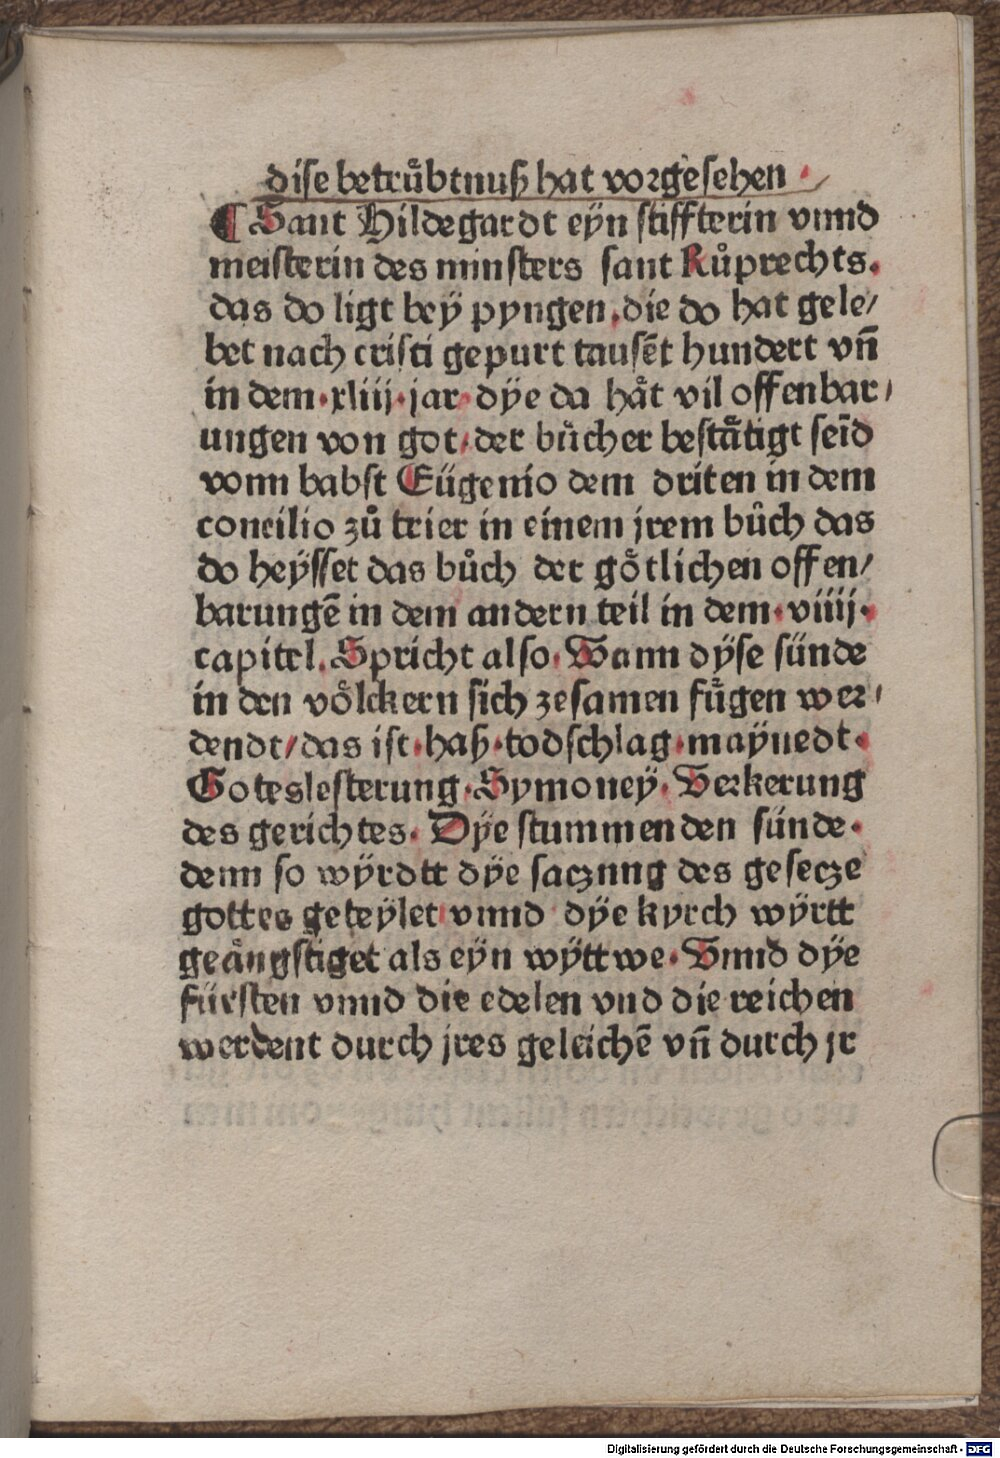 dise betrůbtnuß hat vorgesehen ·
¶ Sant Hildegardt eÿn stiffterin vnnd
meisterin des minsters sant Růprechts.
das do ligt beÿ pyngen. die do hat gele/
bet nach cristi gepurt tausẽt hundert vñ
in dem · xliij · jar · dÿe da håt vil offenbar/
ungen von got / der bůcher beståtigt seĩd
vonn babst Eügenio dem driten in dem
concilio zů trier in einem jrem bůch das
do heÿsset das bůch der gőtlichen offen/
barungẽ in dem andern teil in dem · viiij ·
capitel. Spricht also · Wann dÿse sünde
in den vőlckern sich zesamen fůgen wer/
dendt / das ist · haß · todschlag · maÿnedt ·
Goteslesterung · Symoneÿ · Verkerung
des gerichtes · Dÿe stummenden sünde ·
denn so wÿrdtt dÿe saczung des gesecze
gottes geteÿlet vnnd dÿe kyrch wÿrtt
geångstiget als eÿn wÿttwe · Vnnd dÿe
fürsten vnnd die edelen vnd die reichen
werdent durch jres geleichẽ vñ durch jr
Digitalisierung gefördert durch die Deutsche Forschungsgemeinschaft · DFG